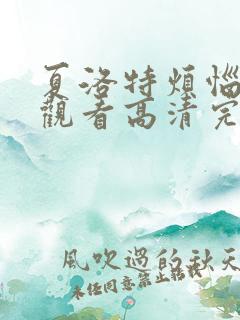 夏洛特煩惱
觀看高清完
風吹過的秋天
未经同意禁止转载